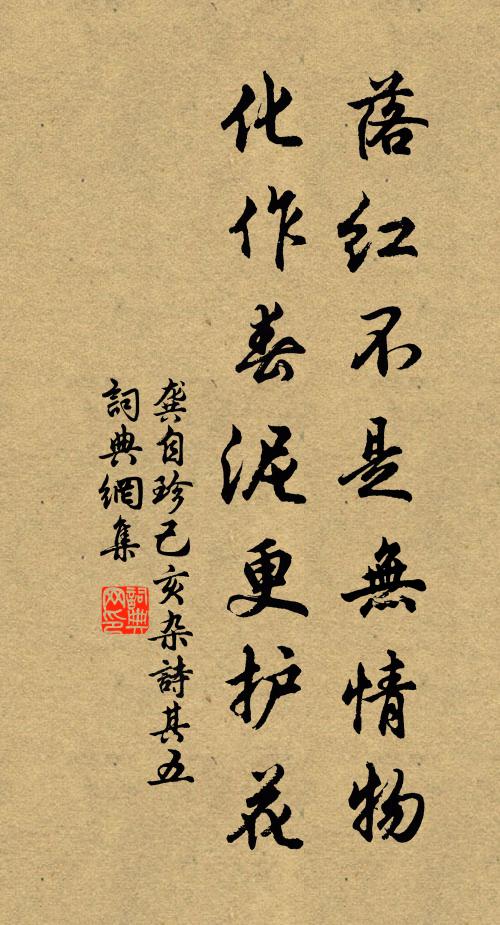 落红不是無情物
化作春泥更护花
龚自珍己亥杂詩其五
詞典網集
詞典
网印